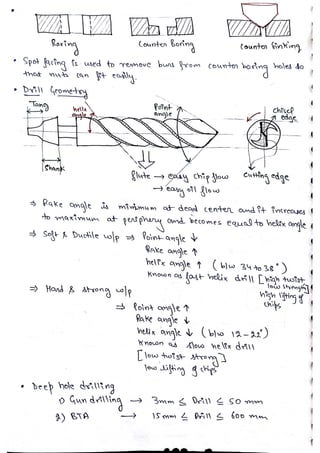 Boring Counter Boring Counter Sinking
• Spot facing is used to remove burs from counter boring holes so
that nuts can fit easily.
• Drill Geometry
Tang helix angle Point angle Chisel edge
Shank
flute → easy chip flow Cutting edge
→ easy oil flow
⇒ Rake angle is minimum at dead center and it increases
to maximum at periphery and becomes equal to helix angle
⇒ Soft & Ductile w/p ⇒ Point angle ↓
Rake angle ↑
helix angle ↑ (b/w 34 to 38°)
Known as fast helix drill [high twist
low strength]
high lifting of
chips
⇒ Hard & strong w/p
⇒ Point angle ↑
Rake angle ↓
helix angle ↓ (b/w 12-22°)
Known as slow helix drill
[low twist strong]
low lifting of chips
• Deep hole drilling
1) Gun drilling → 3mm ≤ Drill ≤ 50 mm
2) BTA → 15 mm ≤ Drill ≤ 600 mm